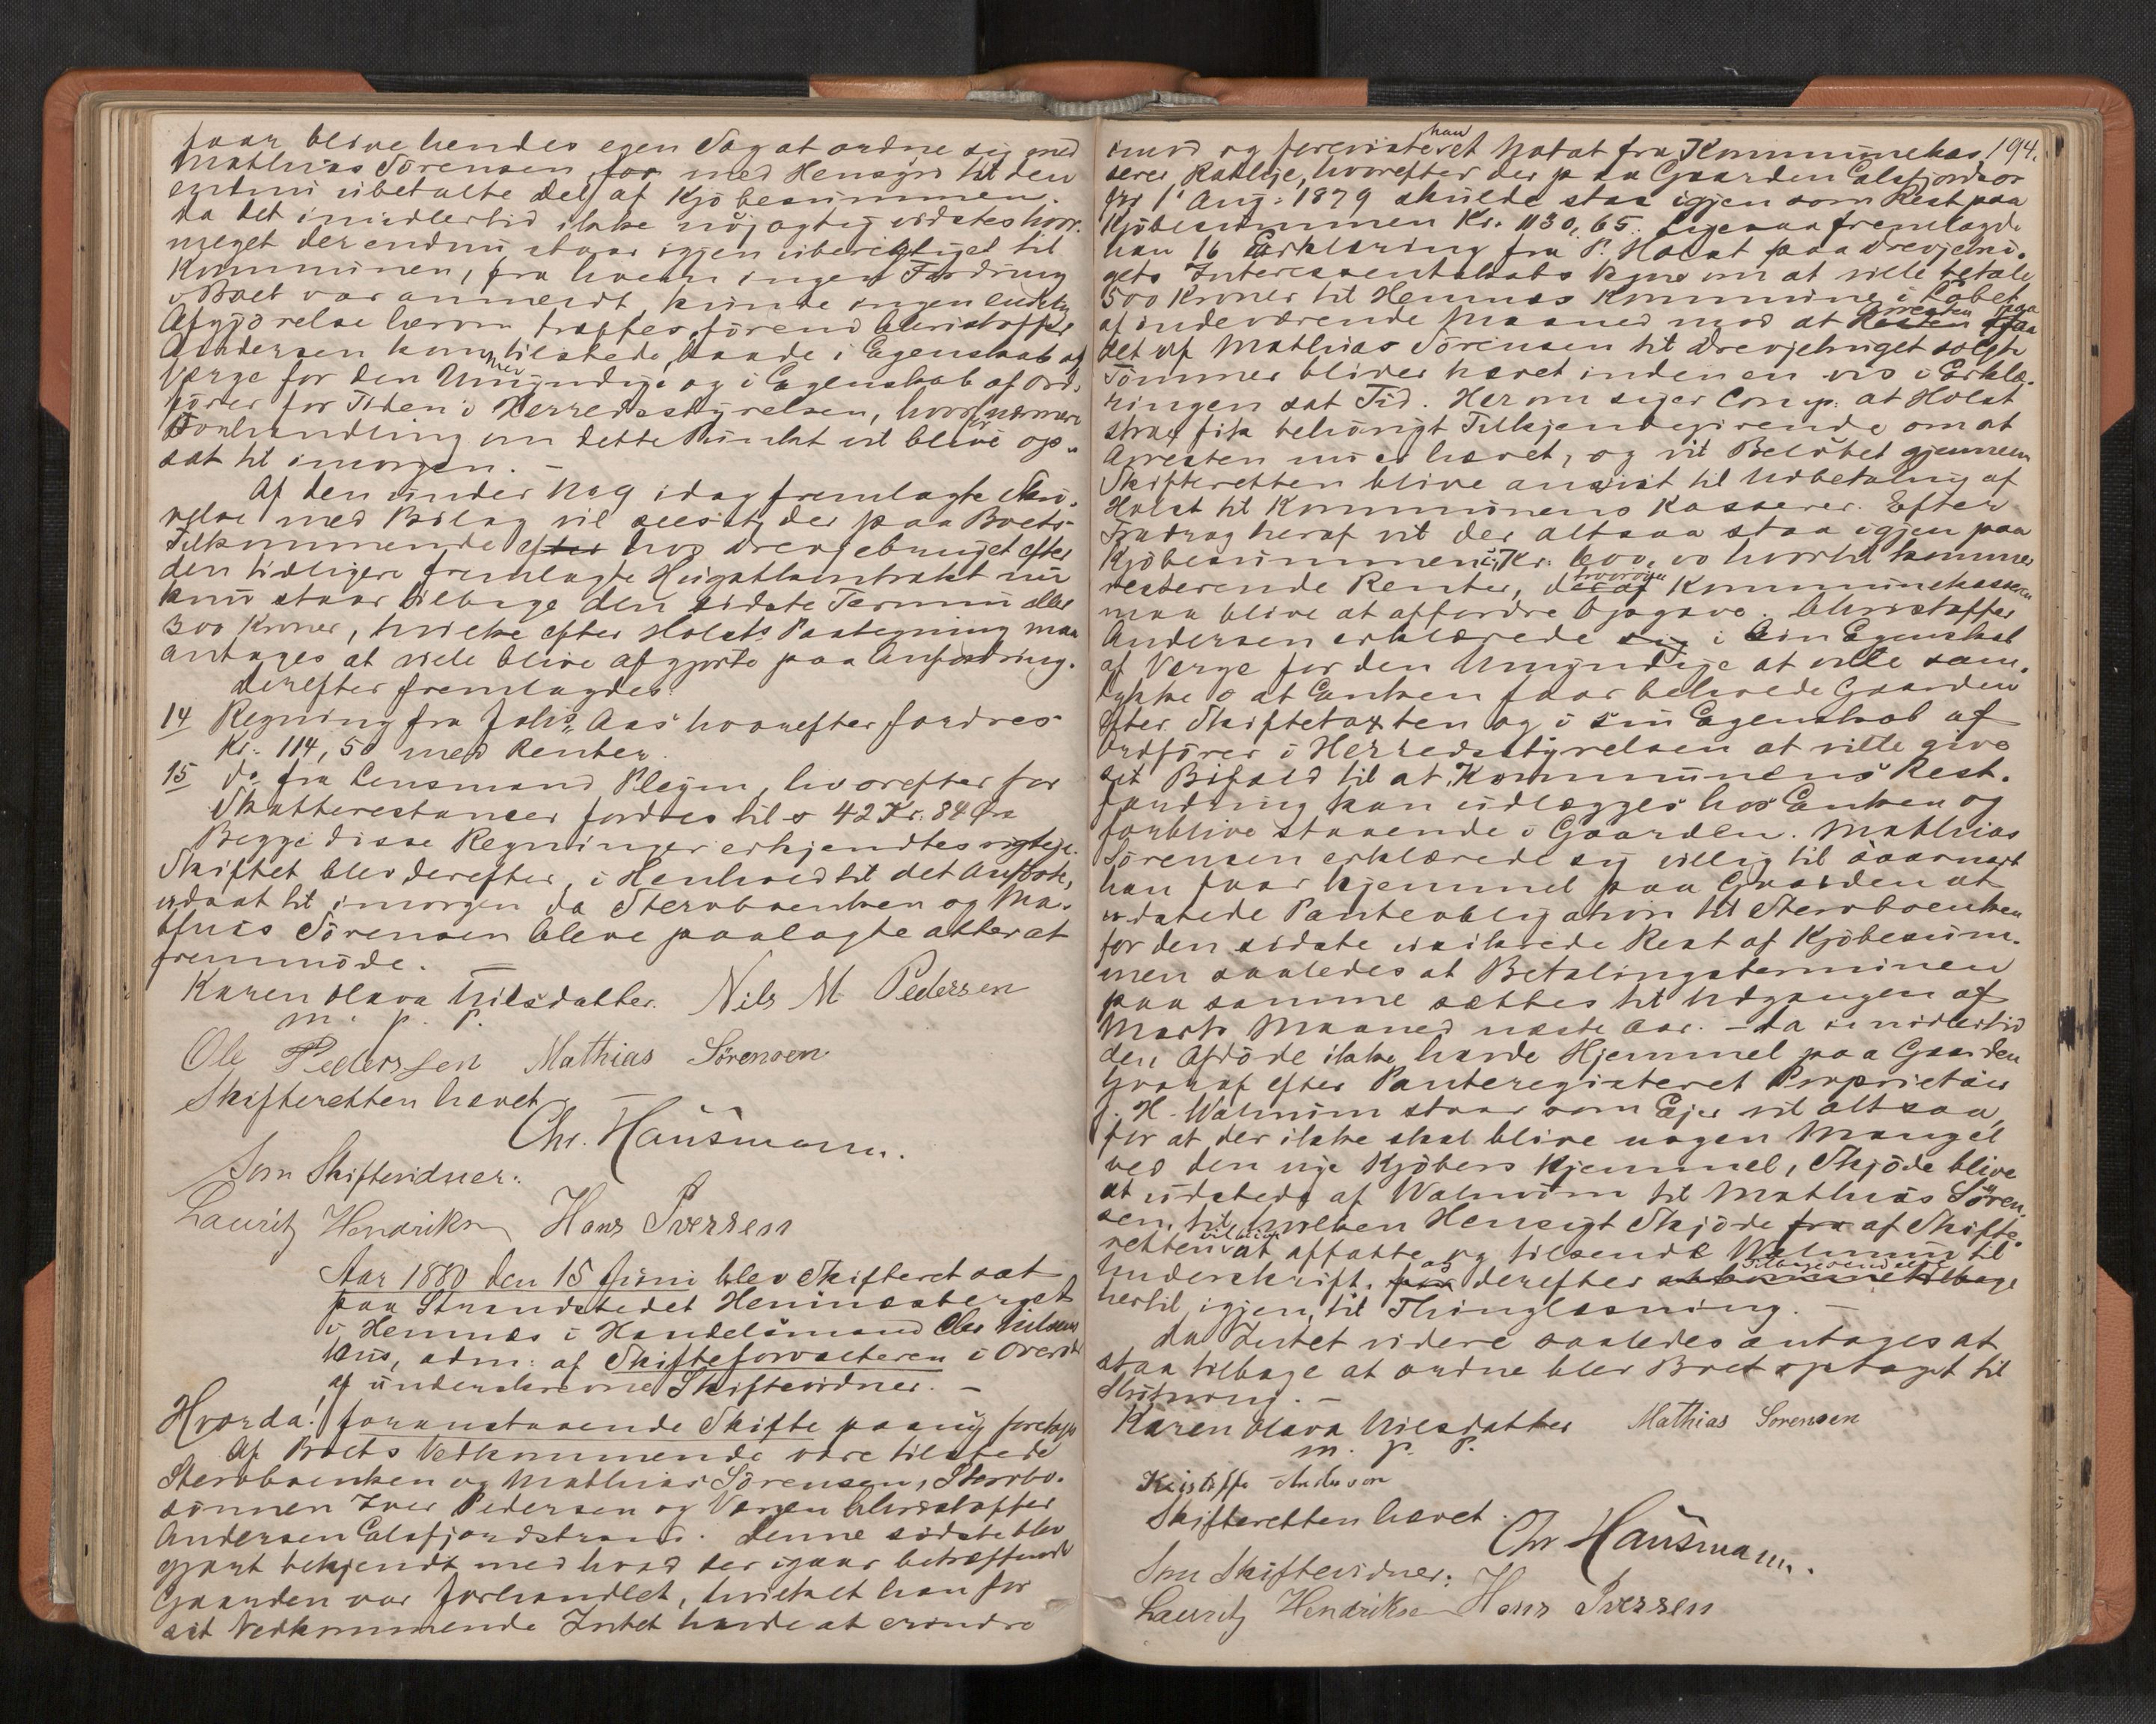 faar blive hendes egen Sag at ordne sig med
Mathias Sörensen for med Hensyn til den
endnu ubetalte Del af Kjöbesummen.
Da det imidlertid ikke nöjagtig vidstes hvor
meget der endnu staar igjen uberigtiget til
Kommunen, fra hvem ingen Fordring
i Boet var anmeldt, kunde ingen endelig
Afgjörelse herom træffes, förend Christoffer
Andersen kom tilstede, baade i Egenskab af
Værge for den Umyndige og i Egenskab af Ord-
förer for Tiden i Herredsstyrelsen, hvorfor nærmere
Forhandling om dette Punkt vil blive op-
sat til imorgen. –
Af den under No 9 idag fremlagte Skri-
velse med Bilag vil sees at der paa Boets
Tilkommende efter hos Drevjebruget efter
den tidligere fremlagte Hugstkontrakt nu
kun staar tilbage den sidste Termin eller
300 Kroner, hvilke efter Holsts Paategning maa
antages at ville blive afgjorte paa Anfordring.
Derefter fremlagdes:
14 Regning fra Johs Aas hvorefter fordres
Kr. 114,50 med Renter
15 Do fra Lensmand Pleym, hvorefter for
Skatterestancer fordres til 42 Kr. 84 Öre
Begge disse Regninger erkjendtes rigtige.
Skiftet blev derefter, i Henhold til det Anförte,
udsat til imorgen da Sterboenken og Ma-
thias Sörensen bleve paalagte atter at
fremmöde. –
Karen Olava Nilsdatter. Nils M Pedersen
m. p. P.
Ole Pedersen Mathias Sörensen
Skifteretten hævet. –
Chr. Hausmann.
Som Skiftevidner:
Lauritz Hendriksen Hans Iversen
Aar 1880 den 15 Juni blev Skifteret sat
paa Strandstedet Hemnæsberget
i Hemnæs i Handelsmand Chr Nilsens
Hus, adm: af Skifteforvalteren i Overvær
af underskrevne Skiftevidner. –
Hvorda! foranstaaende Skifte paany foretoges
Af Boets Vedkommende vare tilstede
Sterboenken og Mathias Sörensen, Sterbo-
sönnen Iver Pedersen og Værgen Christoffer
Andersen Calsfjordstrand. Denne sidste blev
gjort bekjendt med hvad der igaar betræffende
Gaarden var forhandlet, hvilket han for
sit Vedkommende Intet havde at erindre
194.
imod og foreviste han et Notat fra Kommunekas-
serer Kahlye, hvorefter der paa Gaarden Calsfjordsor
pr 1 Aug: 1879 skulde staa igjen som Rest paa
Kjöbesummen Kr. 1130,65. Ligesaa fremlagde
han 16 Erklæring fra P. Holst paa Drevjebru-
gets Interessentskabs Vegne om at ville betale
500 Kroner til Hemnæs Kommune i Löbet
af indeværende Maaned mod at Resten paa Arresten paa
det af Mathias Sörensen til Drevjebruget solgte
Tömmer bliver hævet inden en vis i Erklæ-
ringen sat Tid. Herom siger Comp. at Holst
strax fik behörigt Tilkjendegivende om at
Arresten nu er hævet, og vil Belöbet gjennem
Skifteretten blive anvist til Udbetaling af
Holst til Kommunens Kasserer. Efter
Fradrag heraf vil der altsaa staa igjen paa
Kjöbesummen Kr. 600,00 hvortil kommer
resterende Renter, der af hvorover Kommunekassereren
maa blive at affordre Opgave. Christoffer
Andersen erklærede sig i sin Egenskab
af Værge for den Umyndige at ville sam-
tykke i at Enken faar beholde Gaarden
efter Skiftetaxten og i sin Egenskab af
Ordförer i Herredsstyrelsen at ville give
sit Bifald til at Kommunens Rest-
fordring kan udlægges hos Enken og
forblive staaende i Gaarden. Mathias
Sörensen erklærede sig villig til saasnart
han faar Hjemmel paa Gaarden at
udstede Panteobligation til Sterboenken
for den sidste usikrede Rest af Kjöbesum-
men saaledes at Betalingsterminen
paa samme sættes til Udgangen af
Marts Maaned næste Aar. – Da imidlertid
den Afdöde ikke havde Hjemmel paa Gaarden
hvoraf efter Panteregisteret Proprietær
J. H. Walnum staar som Ejer vil altsaa,
for at der ikke skal blive nogen Mangel
ved den nye Kjöbers Hjemmel, Skjöde blive
at udstede af Walnum til Mathias Sören-
sen, til hvilken Hensigt Skjöde fra af Skifte-
retten vil blive at affatte og tilsende Walnum til
Underskrift, for og derefter at komme tilbage Tilbagesendelse
hertil igjen, til Thinglæsning. –
Da Intet videre saaledes antages at
staa tilbage at ordne blev Boet optaget til
Slutning. –
Karen Olava Nilsdatter Mathias Sorensen
m. p. P.
Kristoffe Andersen
Skifteretten hævet.
Chr Hausmann.
Som Skiftevidner:
Lauritz Hendriksen Hans Iversen